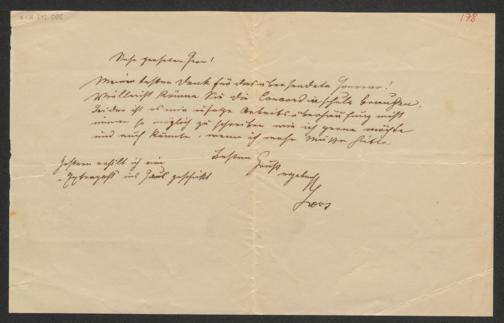 178
Sehr geehrter Herr!
Meinen besten Dank für das übersendete Honorar!
Vielleicht können Sie die Concordiaschule brauchen.
Leider ist es mir infolge Arbeitsüberhäufung nicht
immer so möglich zu schreiben wie ich gerne möchte
und auch könnte, wenn ich mehr Muße hätte.
Besten Gruß
ergebenst
Gestern erhielt ich ein
ins Haus geschickt